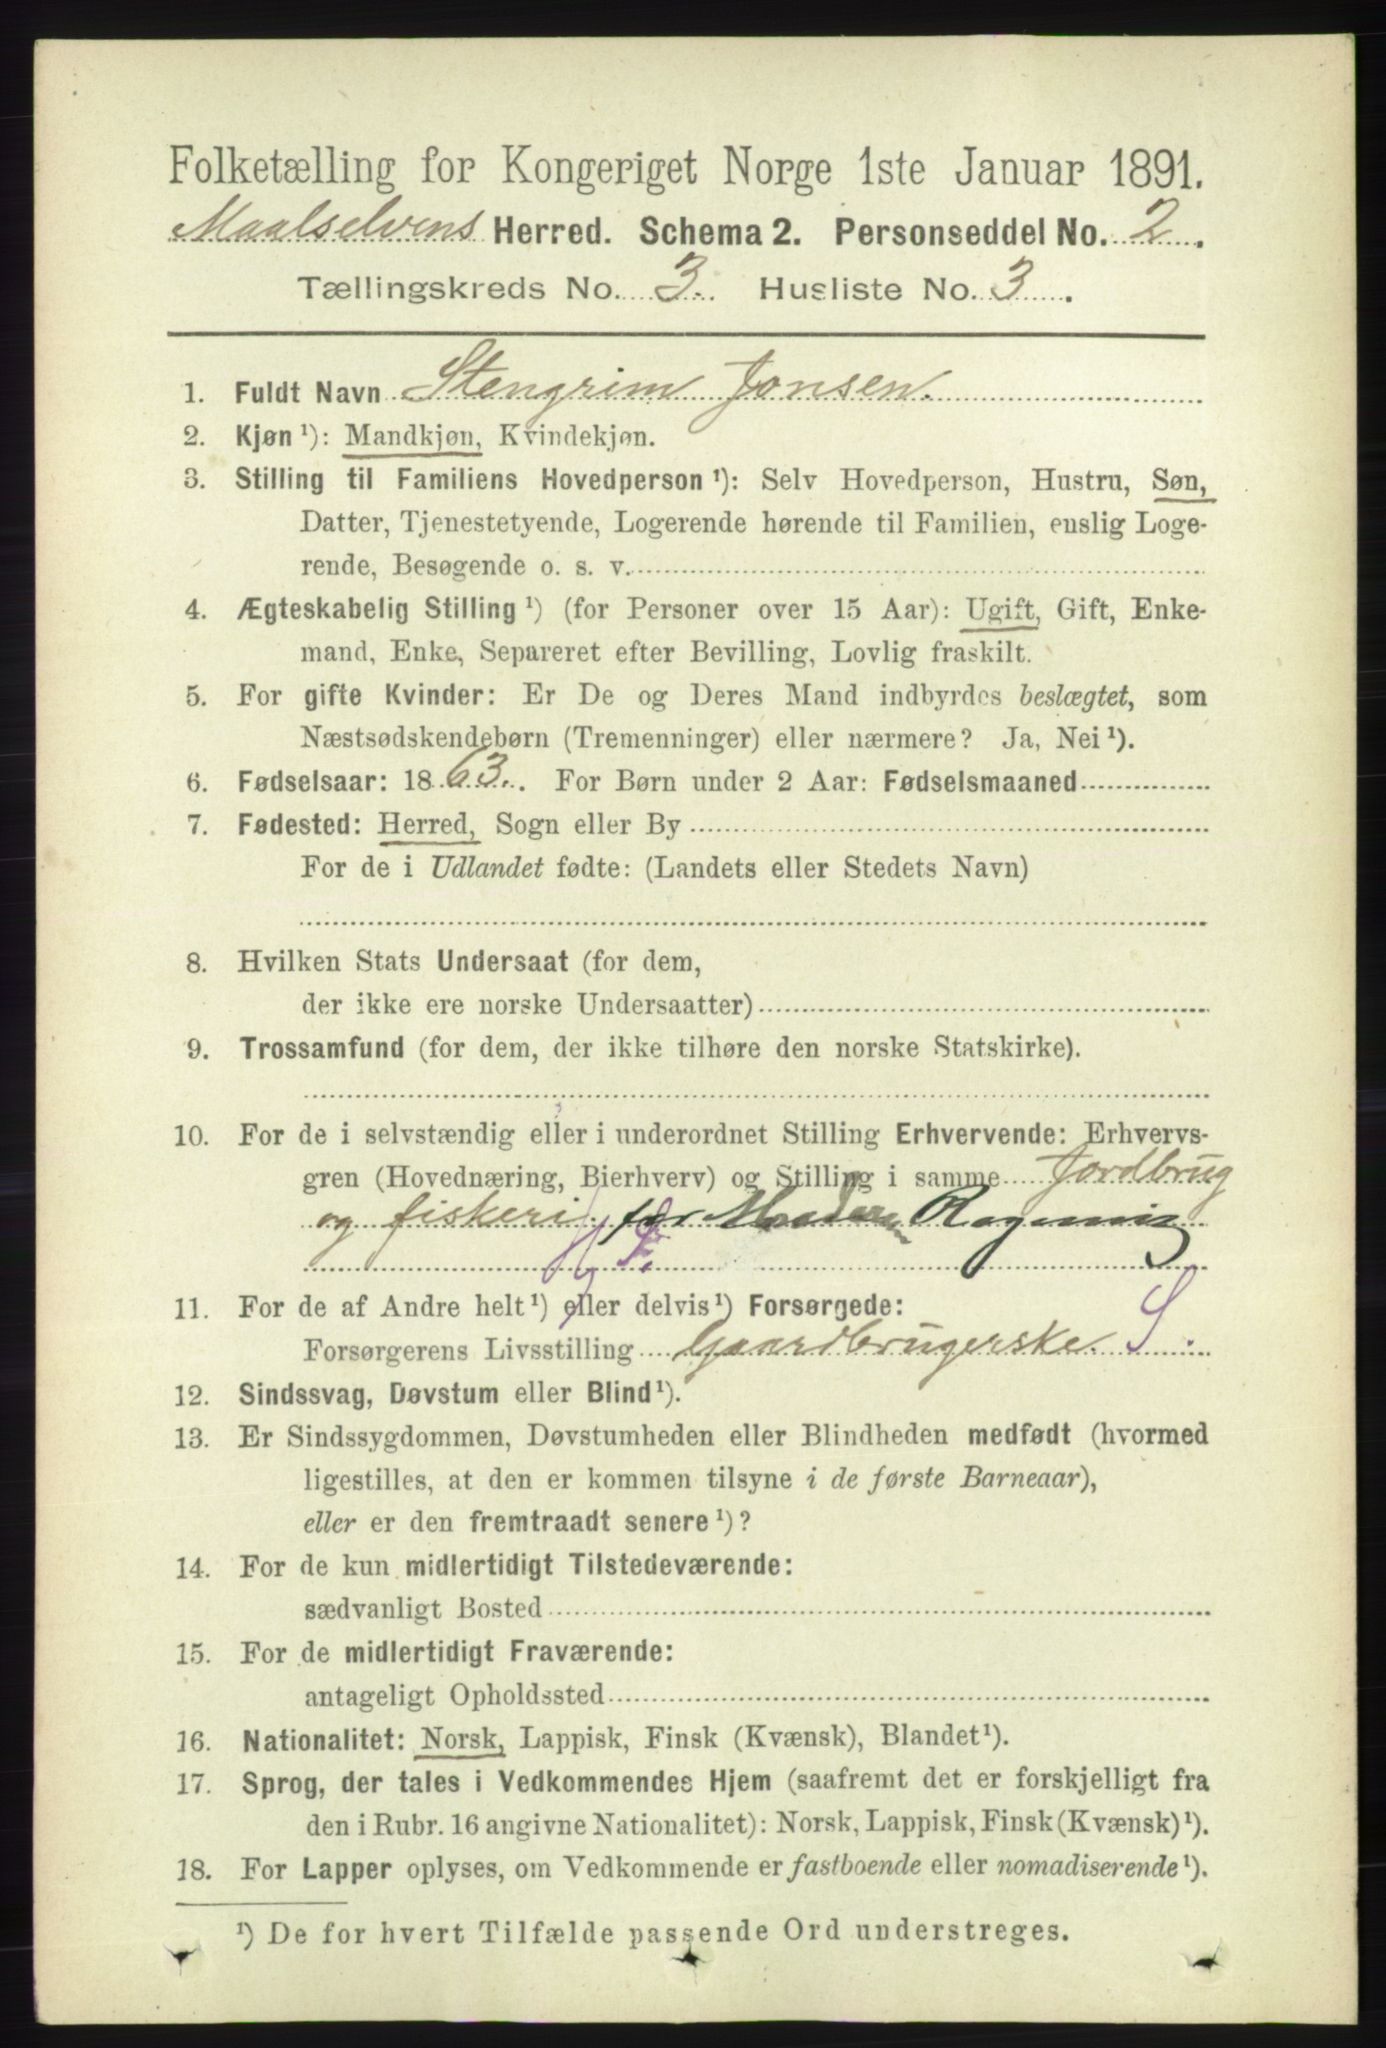 Folketælling for Kongeriget Norge 1ste Januar 1891.
Maalselvens Herred. Schema 2. Personseddel No. 2.
Tællingskreds No. 3. Husliste No. 3.
1. Fuldt Navn Stengrim Jonsen.
2. Kjøn¹): Mandkjøn, Kvindekjøn.
3. Stilling til Familiens Hovedperson¹): Selv Hovedperson, Hustru, Søn,
Datter, Tjenestetyende, Logerende hørende til Familien, enslig Loge-
rende, Besøgende o. s. v.
4. Ægteskabelig Stilling¹) (for Personer over 15 Aar): Ugift, Gift, Enke-
mand, Enke, Separeret efter Bevilling, Lovlig fraskilt.
5. For gifte Kvinder: Er De og Deres Mand indbyrdes beslægtet, som
Næstsødskendebørn (Tremenninger) eller nærmere? Ja, Nei¹).
6. Fødselsaar: 1863. For Børn under 2 Aar: Fødselsmaaned
7. Fødested: Herred, Sogn eller By
For de i Udlandet fødte: (Landets eller Stedets Navn)
8. Hvilken Stats Undersaat (for dem,
der ikke ere norske Undersaatter)
9. Trossamfund (for dem, der ikke tilhøre den norske Statskirke).
10. For de i selvstændig eller i underordnet Stilling Erhvervende: Erhvervs-
gren (Hovednæring, Bierhverv) og Stilling i samme Jordbrug
og fiskeri for Moderen
11. For de af Andre helt¹) eller delvis¹) Forsørgede:
Forsørgerens Livsstilling Gaardbrugerske. S.
12. Sindssvag, Døvstum eller Blind¹).
13. Er Sindssygdommen, Døvstumheden eller Blindheden medfødt (hvormed
ligestilles, at den er kommen tilsyne i de første Barneaar),
eller er den fremtraadt senere¹)?
14. For de kun midlertidigt Tilstedeværende:
sædvanligt Bosted
15. For de midlertidigt Fraværende:
antageligt Opholdssted
16. Nationalitet: Norsk, Lappisk, Finsk (Kvænsk), Blandet¹).
17. Sprog, der tales i Vedkommendes Hjem (saafremt det er forskjelligt fra
den i Rubr. 16 angivne Nationalitet): Norsk, Lappisk, Finsk (Kvænsk)¹).
18. For Lapper oplyses, om Vedkommende er fastboende eller nomadiserende¹).
¹) De for hvert Tilfælde passende Ord understreges.